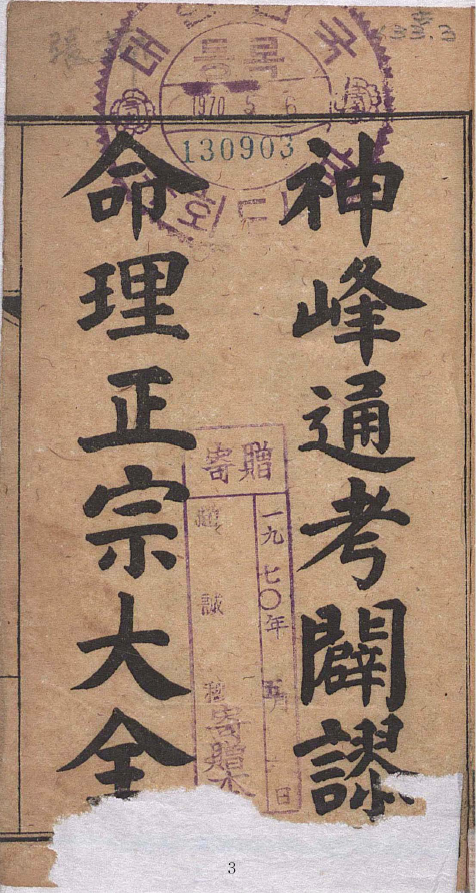 등록
1970 5 6
130903
神峰通考闢謬
命理正宗大全
寄贈
一九七〇年 五月 日
誠
寄贈本
3